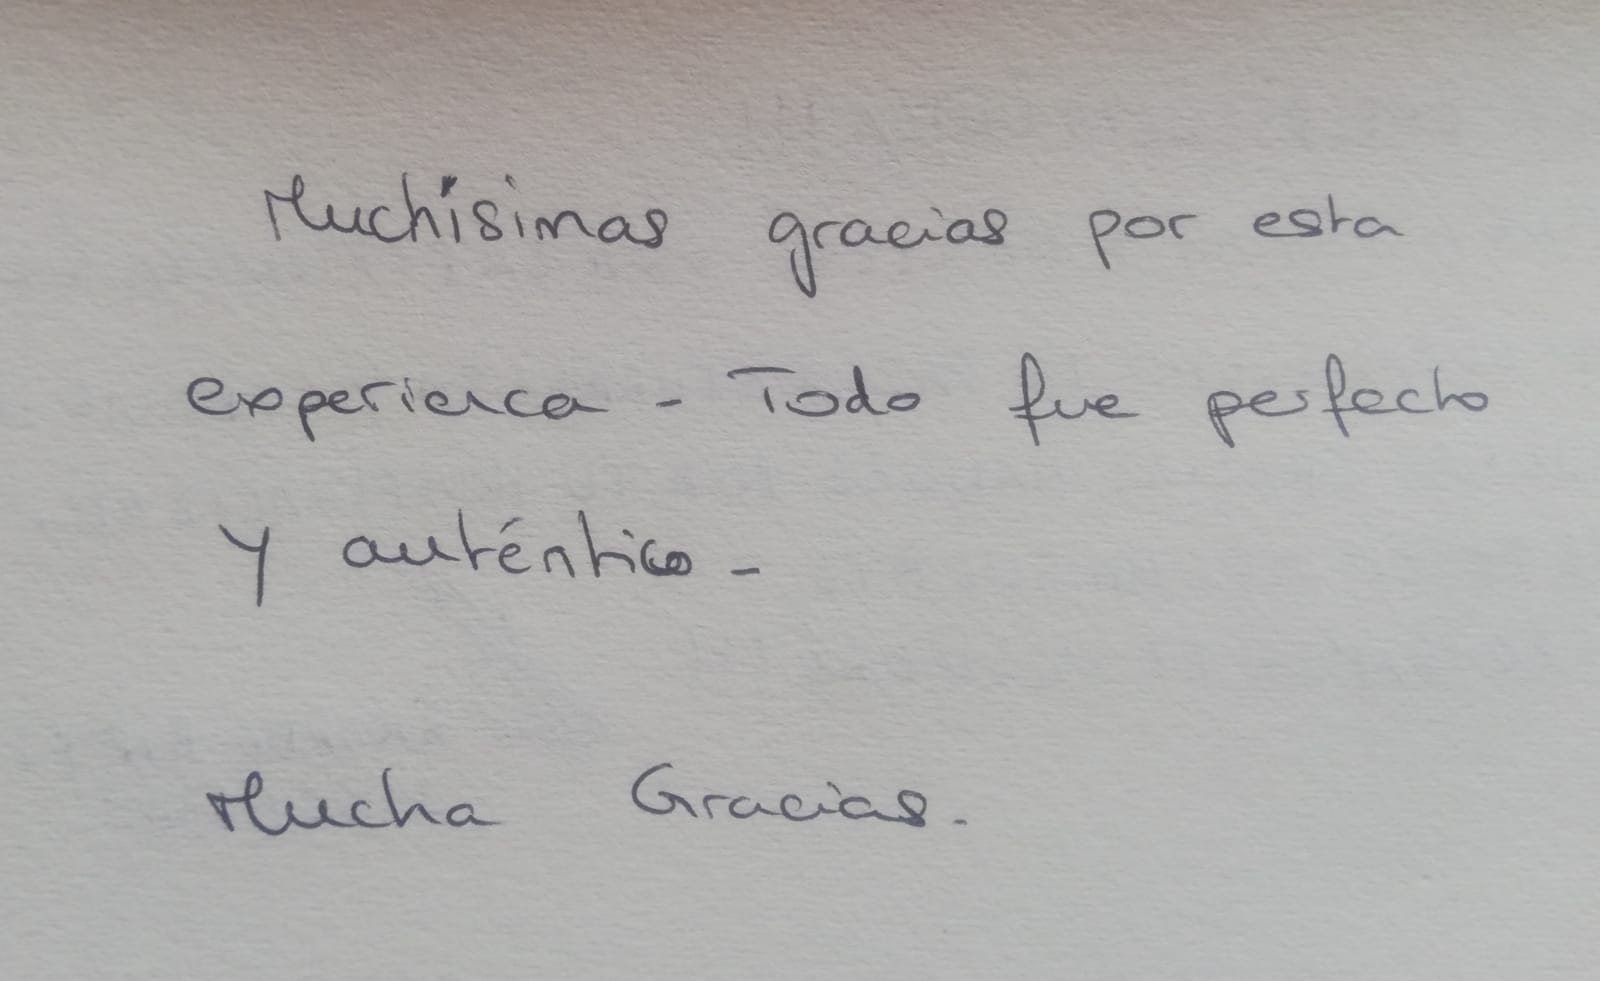 Muchísimas gracias por esta
experienca - Todo fue perfecto
y auténtico -
Mucha Gracias.